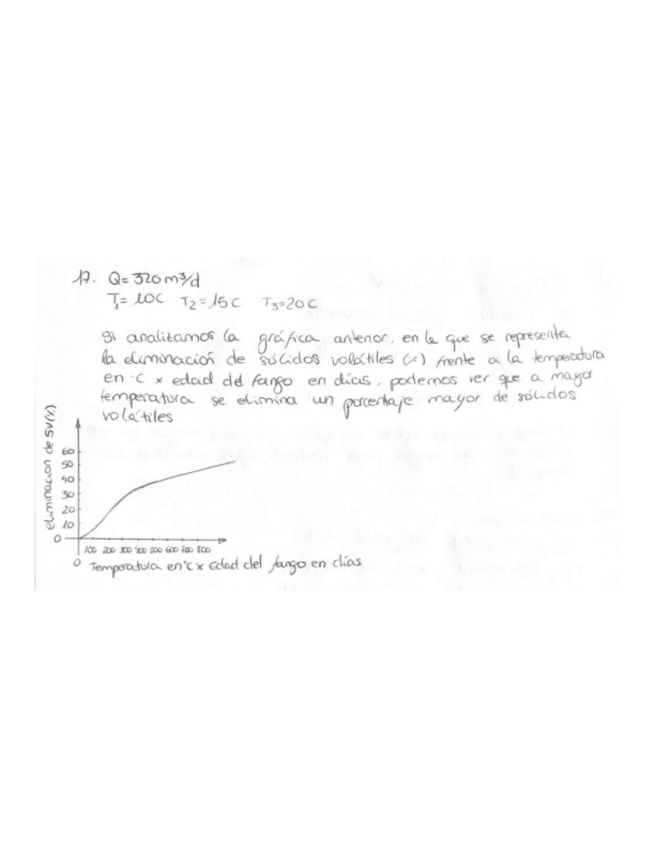 17. Q= 320 m³/d
T₁= 10C T₂= 15C T₃=20C
Si analizamos la gráfica anterior, en la que se representa
la eliminación de sólidos volátiles (%) frente a la temperatura
en °C x edad del fango en días, podemos ver que a mayor
temperatura se elimina un porcentaje mayor de sólidos
volátiles
eliminación de SV(%)
60
50
40
30
20
10
0
100 200 300 400 500 600 700 800
0 Temperatura en °C x Edad del fango en días